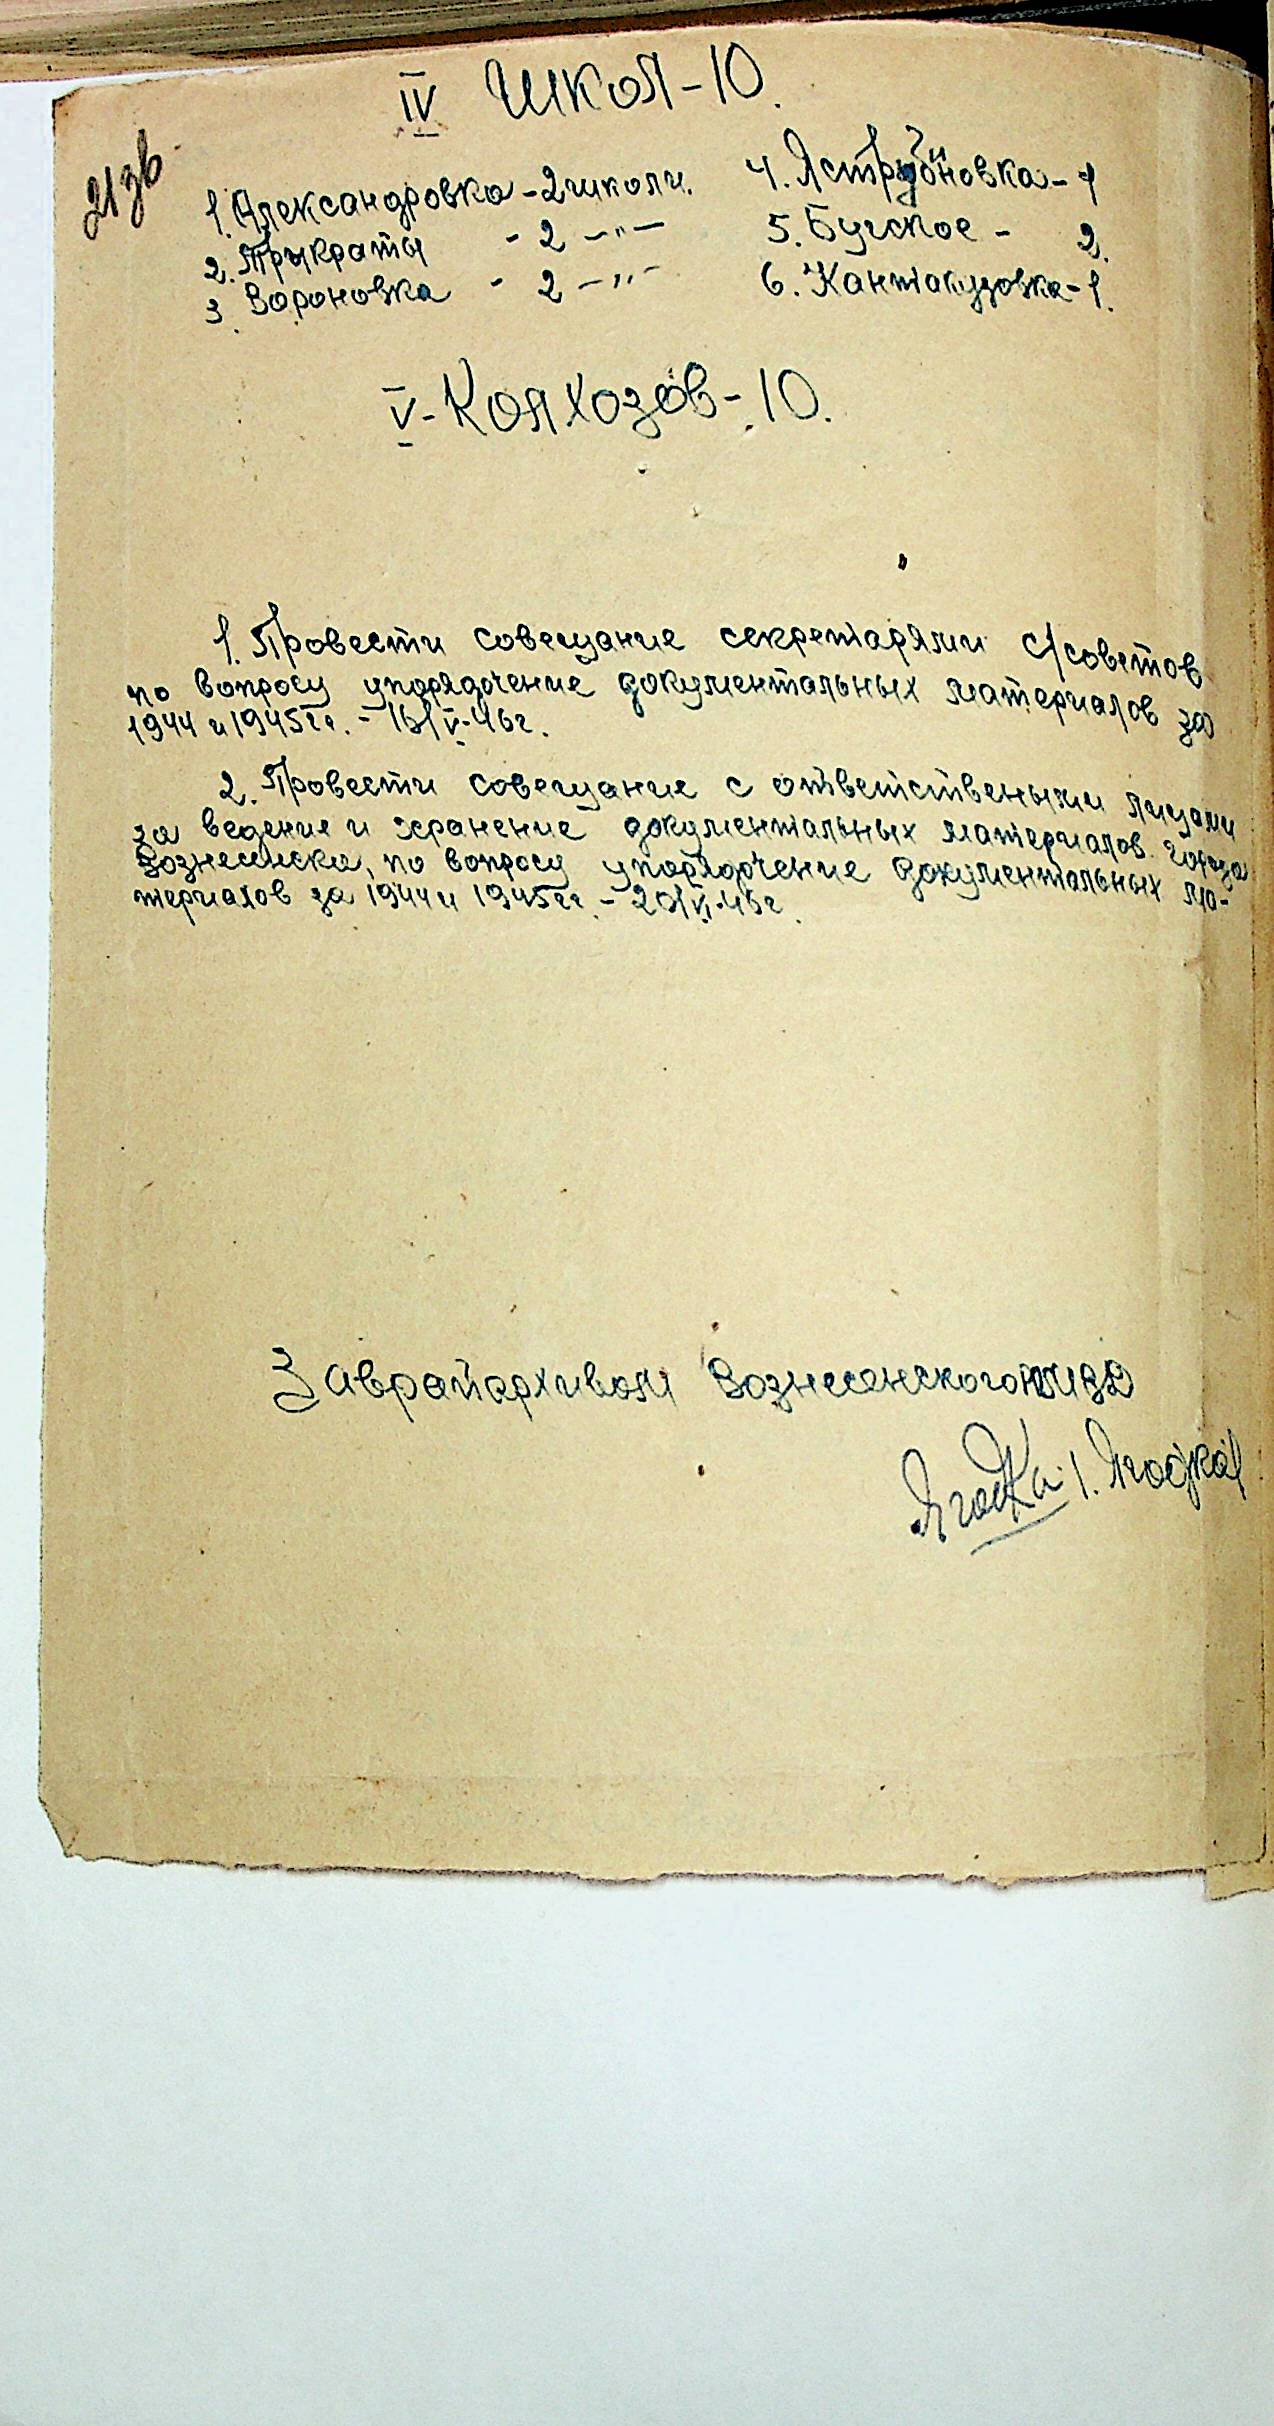 IV Школ-10.
21зв
1. Александровка - 2 школи.
2. Трыкраты - 2 -„-
3. Вороновка - 2 -„-
4. Яструбиновка - 1
5. Бугское - 2.
6. Кантакузовка - 1.
V - Колхозов - 10.
1. Провести совещание секретарями с/советов
по вопросу упорядочение документальных материалов за
1944 и 1945 гг. - 16/V-46г.
2. Провести совещание с ответствеными лицами
за ведения и хранение документальных материалов города
Вознесенска, по вопросу упорядочение документальных ма-
териалов за 1944 и 1945 гг. - 20/VI-46г.
Заврайархивом Вознесенского
Ягодка /. Ягодка/